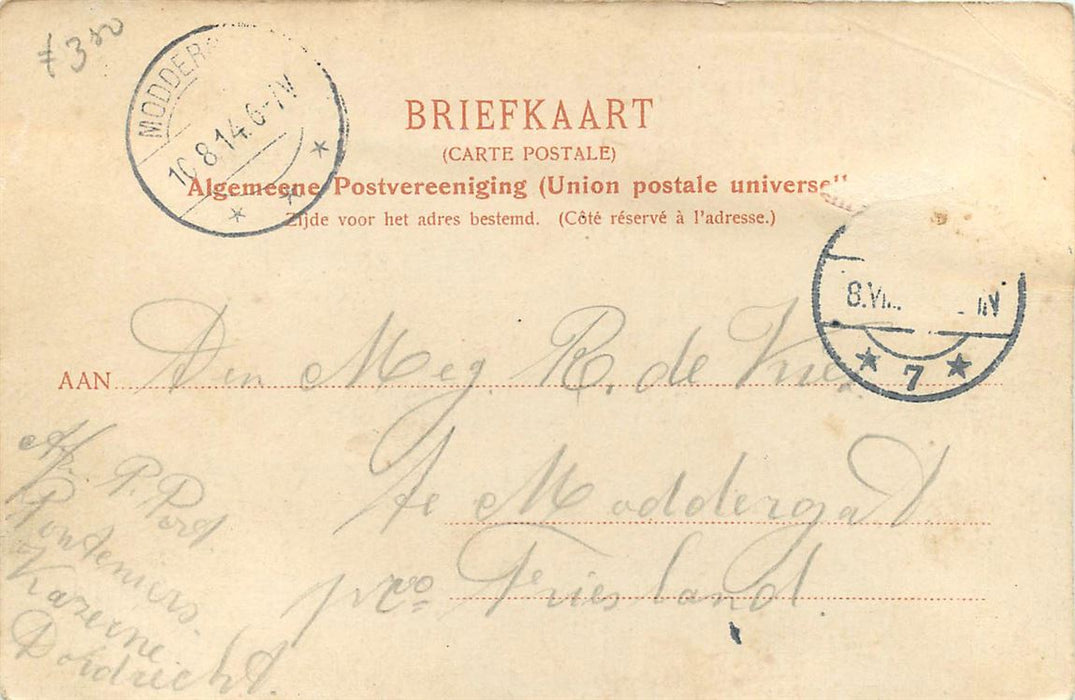 f 3 50
MODDER
10.8.14.6-7V
BRIEFKAART
(CARTE POSTALE)
Algemeene Postvereeniging (Union postale universell
Zijde voor het adres bestemd. (Côté réservé à l'adresse.)
8.VIII
7
AAN Den Mej R. de Vries
te Moddergat.
prvo Friesland.
Af. P. Port
Ponteniers.
Kazerne
Dordrecht.